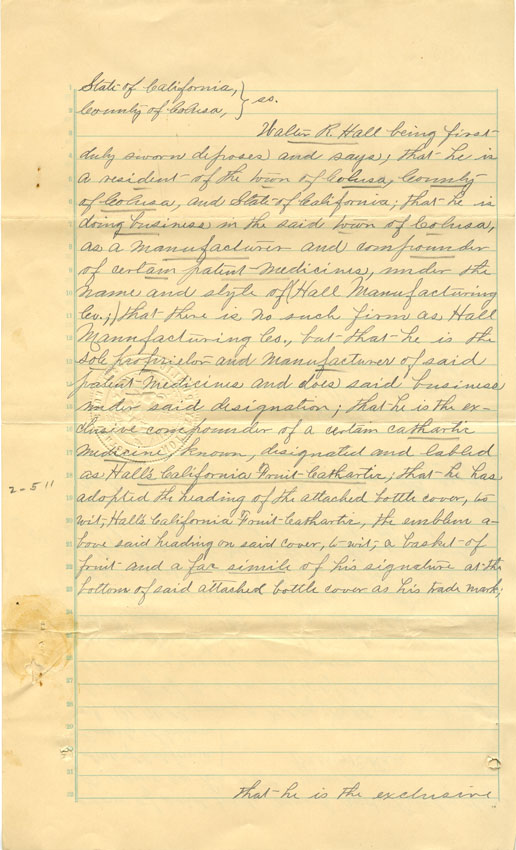 State of California, }
County of Colusa, } ss.
Walter R. Hall being first
duly sworn deposes and says; that he is
a resident of the town of Colusa, County
of Colusa, and State of California; that he is
doing business in the said town of Colusa,
as a manufacturer and compounder
of certain patent medicines, under the
name and style of (Hall Manufacturing
Co.;) that there is no such firm as Hall
Mannfacturing Co., but that he is the
sole proprietor and manufacturer of said
patent medicines and does said business
under said designation; that he is the ex-
clusive compounder of a certain cathartic
medicine known, designated and labled
as Hall's California Fruit Cathartic; that he has
2-511
adopted the heading of the attached bottle cover, to
wit, Hall's California Fruit Cathartic, the emblem a-
bove said heading on said cover, to wit, a basket of
fruit and a fac simile of his signature at the
bottom of said attached bottle cover as his trade mark;
that he is the exclusive